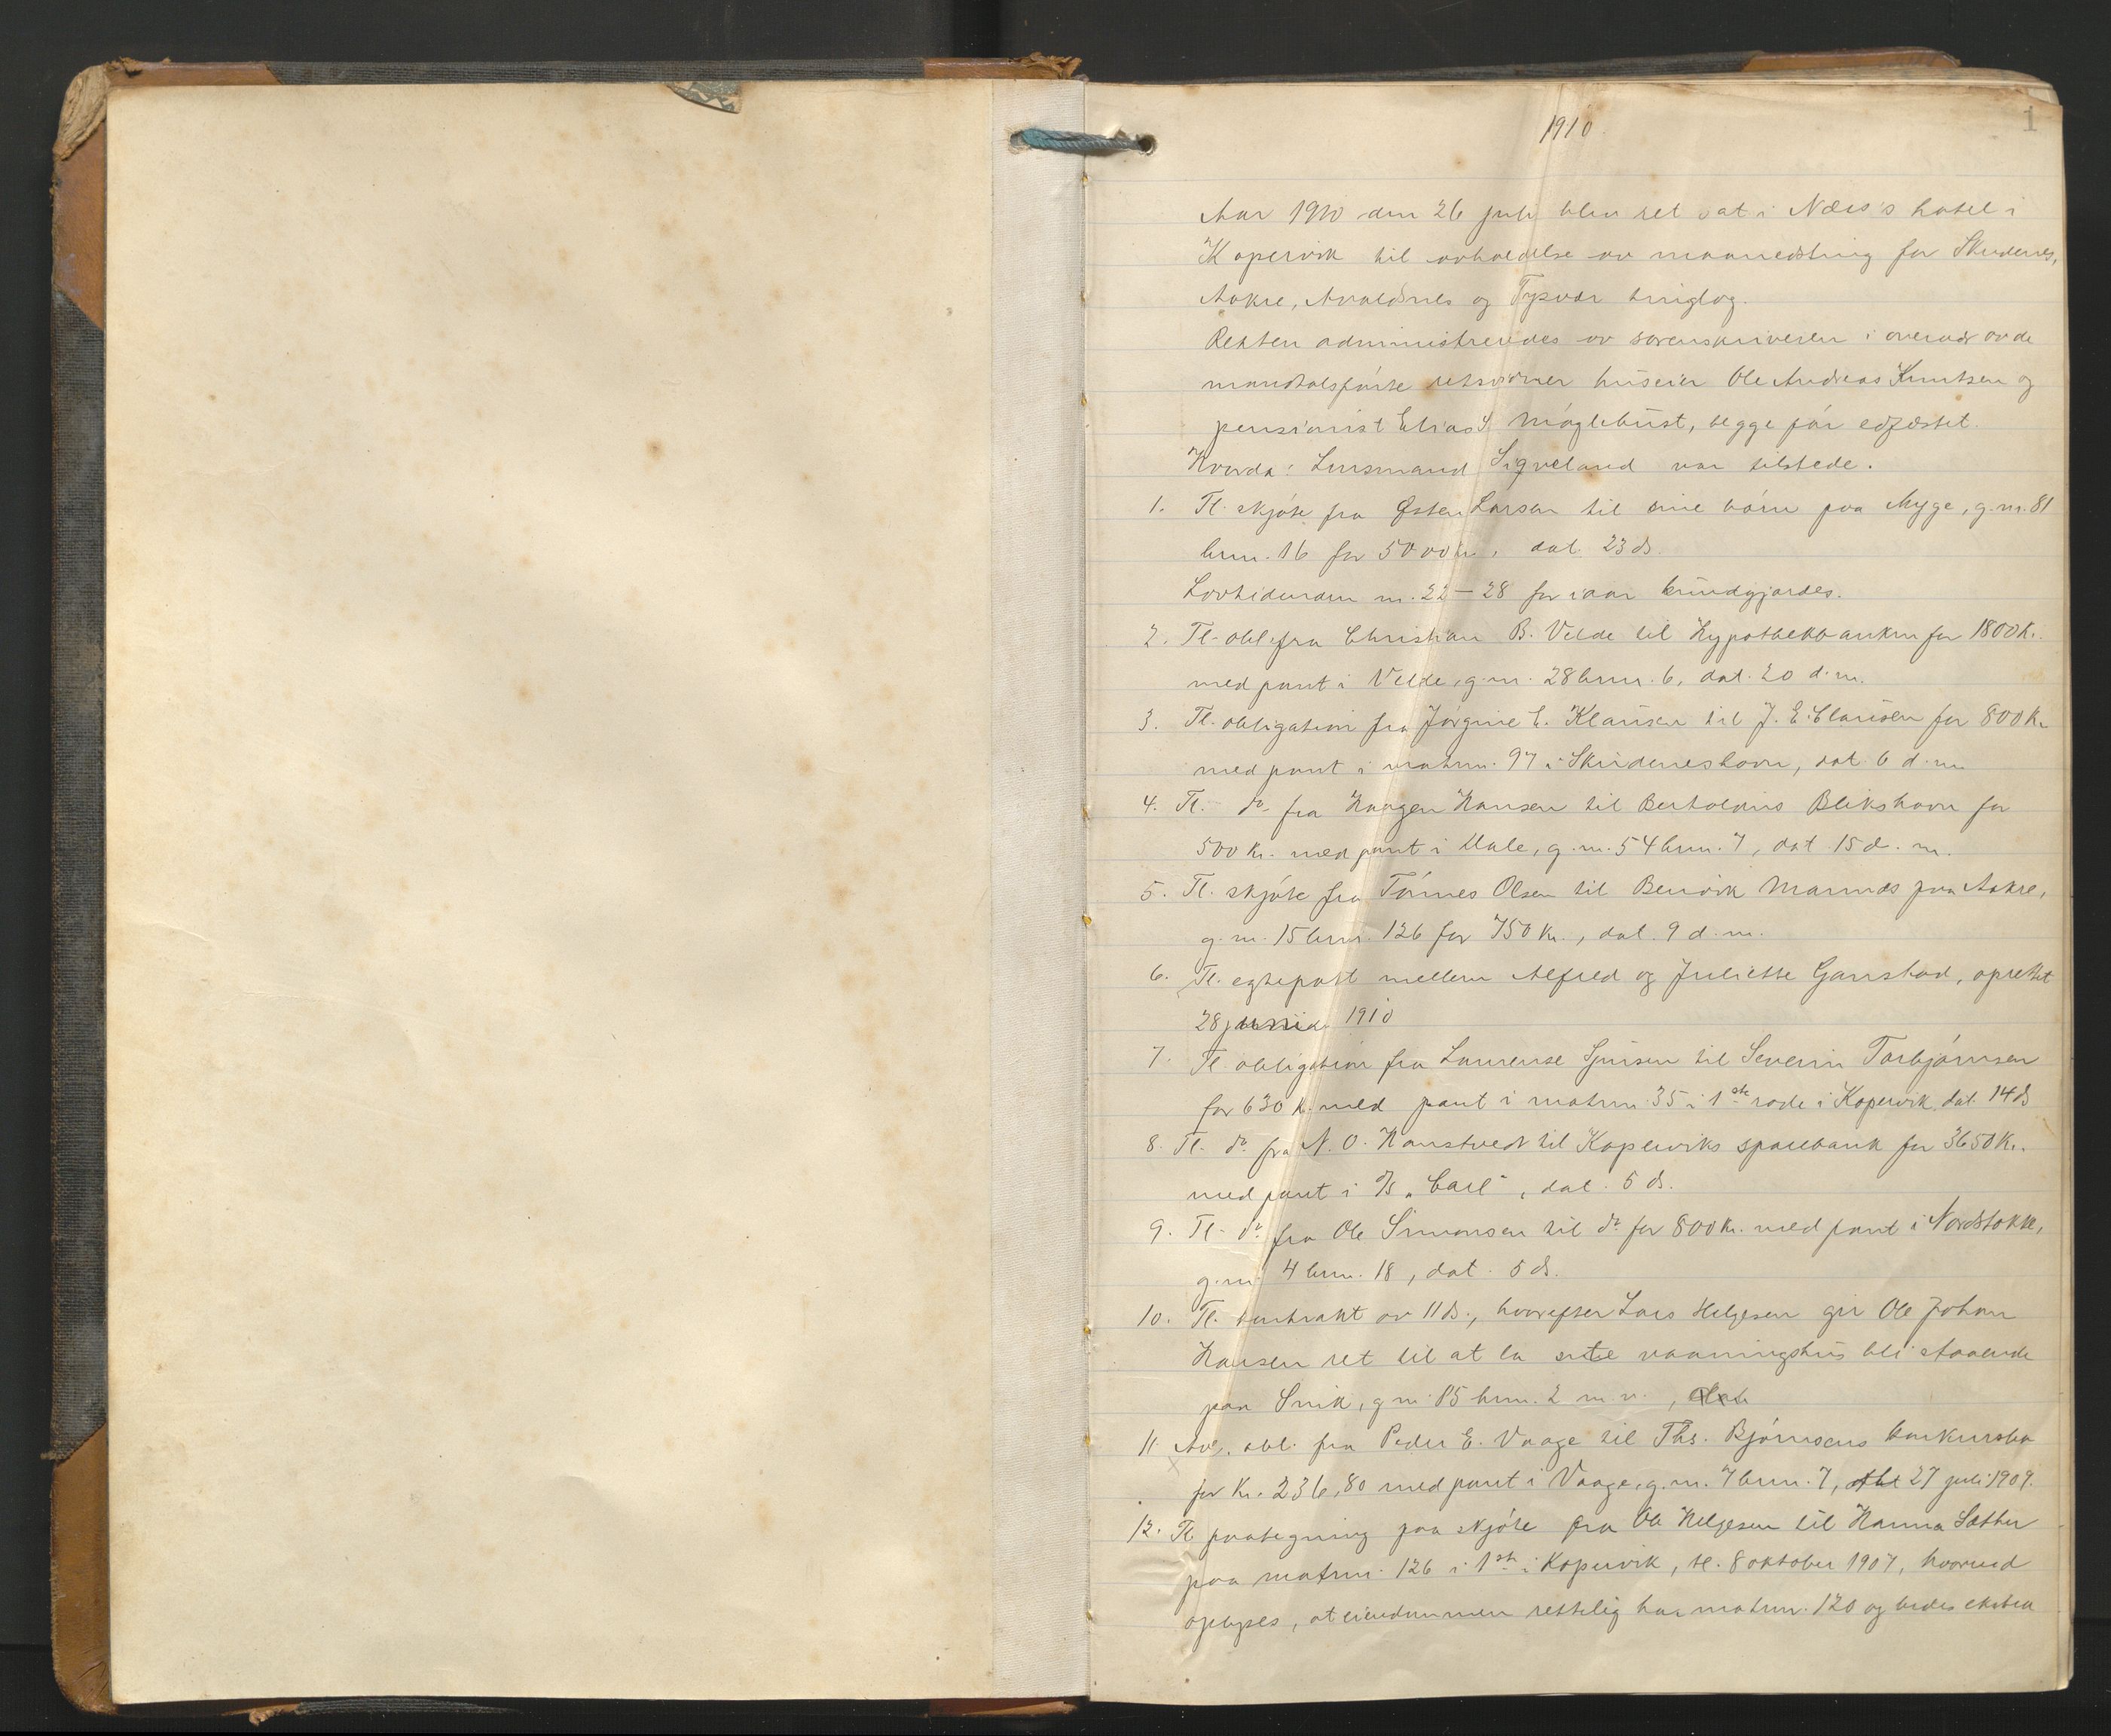 1
1910
Aar 1910 den 26 juli blev ret sat i Næss's hotel i
Kopervik til avholdelse av maanedsting for Skudenes,
Aakre, Avaldsnes og Tysvær tinglag.
Retten administrertes av sorenskriveren i overvær av de
mandtalsførte retsvidner huseier Ole Andreas Knutsen og
pensionist Elias S. Møglebust, begge før edfæstet.
Hvorda: Lensmand Sigveland var tilstede.
1. Tl. skjøte fra Østen Larsen til sine børn paa Myge, g.nr. 81
brnr. 16 for 5000 kr, dat. 23 ds.
Lovtidenden nr. 22 - 28 for iaar kundgjordes.
2. Tl. obl. fra Christian B. Velde til Hypothekbanken for 1800 kr.
med pant i Velde, g.nr. 28 brnr. 6, dat. 20 d.m.
3. Tl. obligation fra Jørgine E. Klausen til J. E. Clausen for 800 kr
med pant i matrnr. 97 i Skudeneshavn, dat. 6 d.m.
4. Tl. do. fra Haagen Hansen til Bertholdius Blikshavn for
500 kr. med pant i Dale, g.nr. 54 brnr. 7, dat 15 d.m.
5. Tl. skjøte fra Tønnes Olsen til Bendik Mannes paa Aakre,
g.nr. 15 brnr. 126 for 750 kr., dat. 9 d.m.
6. Tl. egtepakt mellem Alfred og Juliette Ganstad, oprettet
28 juni 1910
7. Tl. obligation fra Laurense Sjursen til Severin Torbjørnsen
for 630 kr. med pant i matrnr. 35 i 1ste rode i Kopervik, dat. 14 ds
8. Tl. do. fra N. O. Hanstvedt til Koperviks sparebank for 3650 kr.
med pant i d/s „Carl", dat. 5 ds.
9. Tl. do. fra Ole Simonsen til do. for 800 kr. med pant i Nordstokke,
g.nr. 4 brnr. 18, dat. 5 ds.
10. Tl. kontrakt av 11 ds., hvorefter Lars Helgesen gir Ole Johan
Hansen ret til at la sitte vaaningshus bli staaende
paa Snik, g.nr. 85 brnr. 2 m.v.,
11. Avl. obl. fra Peder E. Vaage til Ths. Bjørnsens konkursbo
for kr. 236,80 med pant i Vaage, g.nr. 7 brnr. 7, 27 juli 1909.
12. Tl. paategning paa skjøte fra Ole Helgesen til Hanna Sæther
paa matrnr. 126 i 1ste i Kopervik, tl. 8 oktober 1907, hvorved
oplyses, at eiendommen rettelig har matrnr. 120 og bedes ekstra